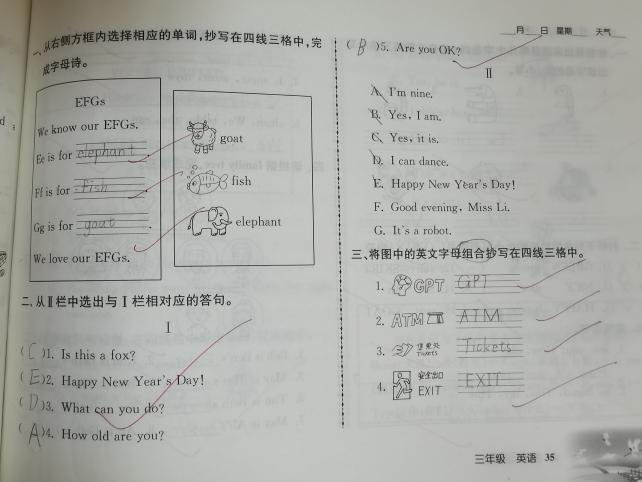 一、从右侧方框内选择相应的单词,抄写在四线三格中,完
成字母诗。
EFGs
We know our EFGs.
Ee is for elephant.
Ff is for fish.
Gg is for goat.
We love our EFGs.
goat
fish
elephant
二、从Ⅱ栏中选出与Ⅰ栏相对应的答句。
Ⅰ
(C)1. Is this a fox?
(E)2. Happy New Year's Day!
(D)3. What can you do?
(A)4. How old are you?
月 日 星期 天气
(B)5. Are you OK?
Ⅱ
A. I'm nine.
B. Yes, I am.
C. Yes, it is.
D. I can dance.
E. Happy New Year's Day!
F. Good evening, Miss Li.
G. It's a robot.
三、将图中的英文字母组合抄写在四线三格中。
1. GPT GPT
2. ATM ATM
3. 售票处 Tickets Tickets
4. 安全出口 EXIT EXIT
三年级 英语 35